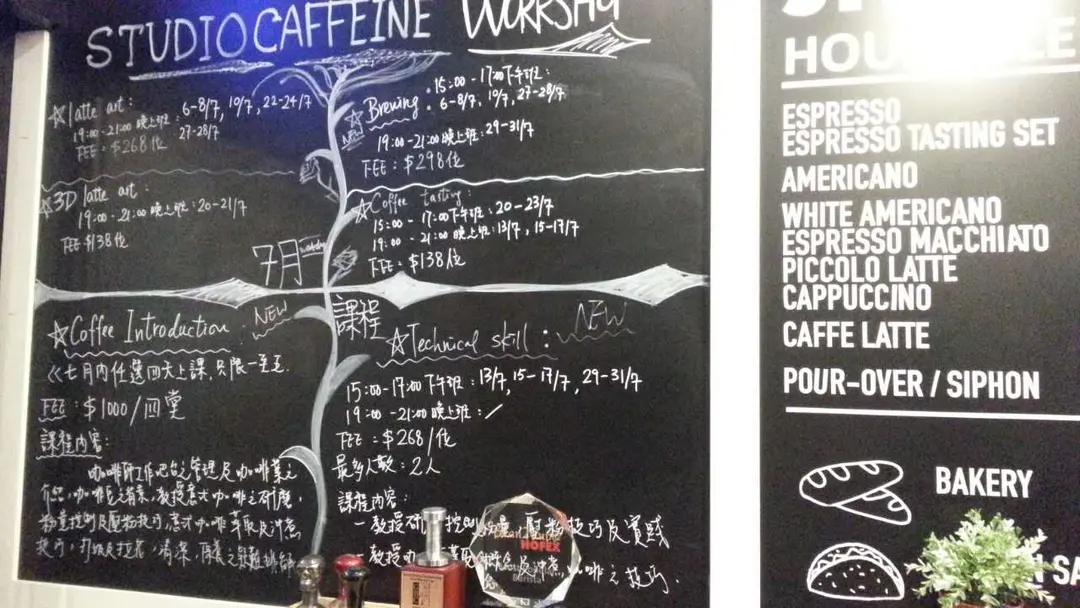 STUDIO CAFFEINE WORKSHO
☆latte art :
6-8/7, 10/7, 22-24/7
19:00-21:00 晚上班: 27-28/7
FEE = $268/位
☆3D latte art :
19:00-21:00晚上班:20-21/7
FEE $138/位
7月
☆Brewing :
NEW
15:00-17:00下午班:
6-8/7, 10/7, 27-28/7
19:00-21:00晚上班:29-31/7
FEE : $298/位
☆Coffee tasting :
15:00 - 17:00下午班:20-23/7
19:00 - 21:00晚上班:13/7, 15-17/7
FEE : $138/位
☆Coffee Introduction :
NEW
七月內任選四天上課,只限一至五
FEE : $1000/四堂
課程內容:
咖啡師工作吧台之管理及咖啡業之
介紹,咖啡豆之
教授意式咖啡之研磨,
粉量控制及壓粉技巧,意式咖啡萃取及沖煮
技巧,打奶及拉花,清潔,
課程
☆Technical skill :
NEW
15:00-17:00下午班:13/7, 15-17/7, 29-31/7
19:00-21:00晚上班:/
FEE = $268/位
最多人數:2人
課程內容:
一教授研
壓粉技巧及實踐
一教授咖
及沖煮咖啡之技巧.
HOFEX
HOU
ESPRESSO
ESPRESSO TASTING SET
AMERICANO
WHITE AMERICANO
ESPRESSO MACCHIATO
PICCOLO LATTE
CAPPUCCINO
CAFFE LATTE
POUR-OVER / SIPHON
BAKERY
SA